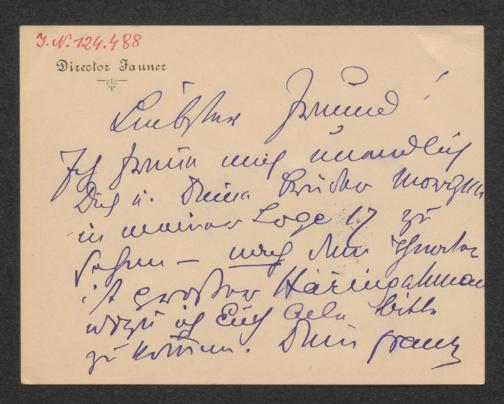 I.N. 124.488
Director Jauner
Liebster Freund!
Ich freue mich unendlich
Dich u. Deine Brüder morgen
in meiner Loge 17 zu
sehen — nach dem Theater
ist grosser Häringschmaus
wozu ich Euch Alle bitte
zu kommen. Dein Franz